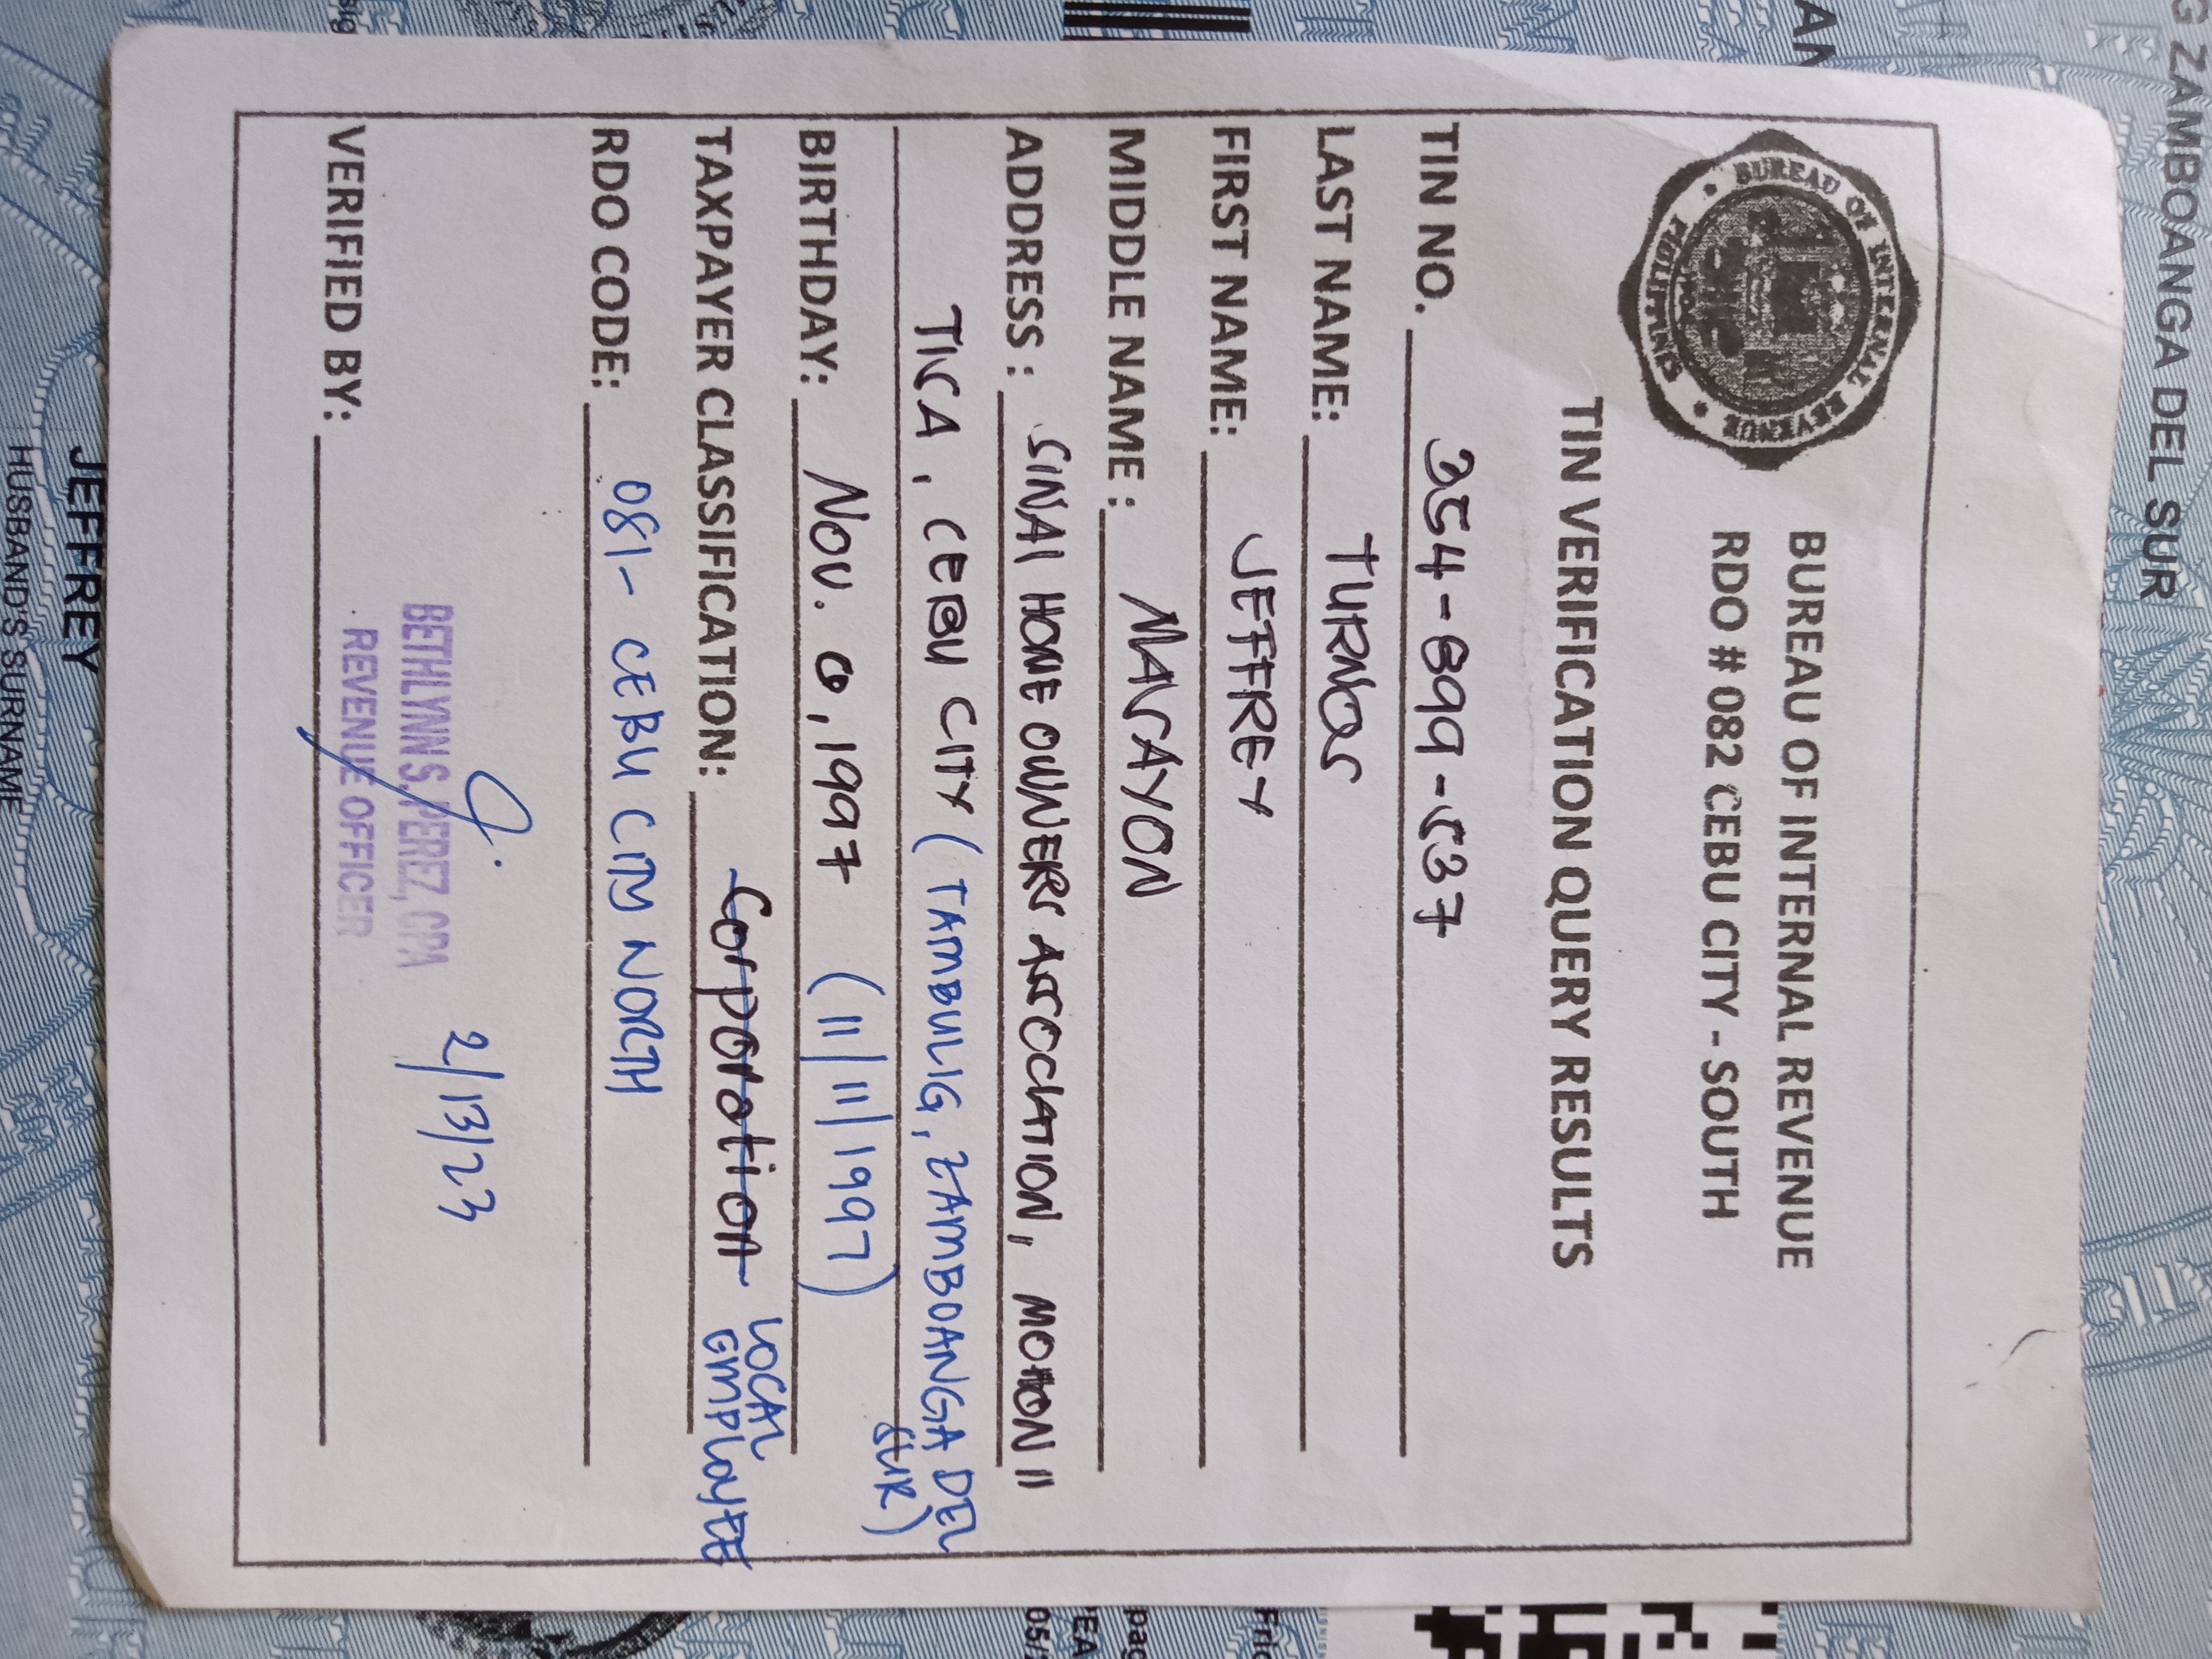 G ZAMBOANGA DEL SUR
BUREAU OF INTERNAL REVENUE
RDO # 082 CEBU CITY - SOUTH
BUREAU OF INTERNAL REVENUE
PHILIPPINES
TIN VERIFICATION QUERY RESULTS
TIN NO. 354-899-537
LAST NAME: TURNOS
FIRST NAME: JEFFREY
MIDDLE NAME: MASAYON
ADDRESS: SINAI HOME OWNERS ASSOCIATION, MOHON II
TISA, CEBU CITY (TAMBULIG, ZAMBOANGA DEL
SUR)
BIRTHDAY: NOV. 1997 (11/11/1997)
TAXPAYER CLASSIFICATION: Corporation LOCAL
EMPLOYEE
RDO CODE: 081- CEBU CITY NORTH
BETHLYNN S. PEREZ, CPA 2/13/23
REVENUE OFFICER
VERIFIED BY:
JEFFREY
HUSBAND'S SURNAME